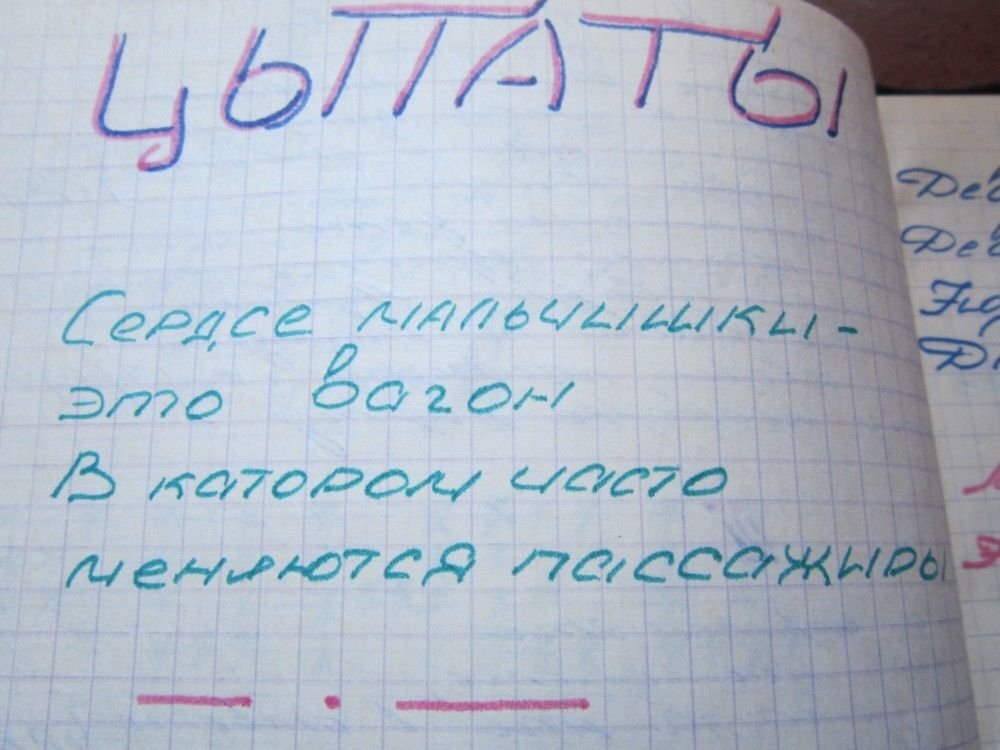 ЦЫТАТЫ
Сердсе мальчишки -
это вагон
В катором часто
меняются пассажиры